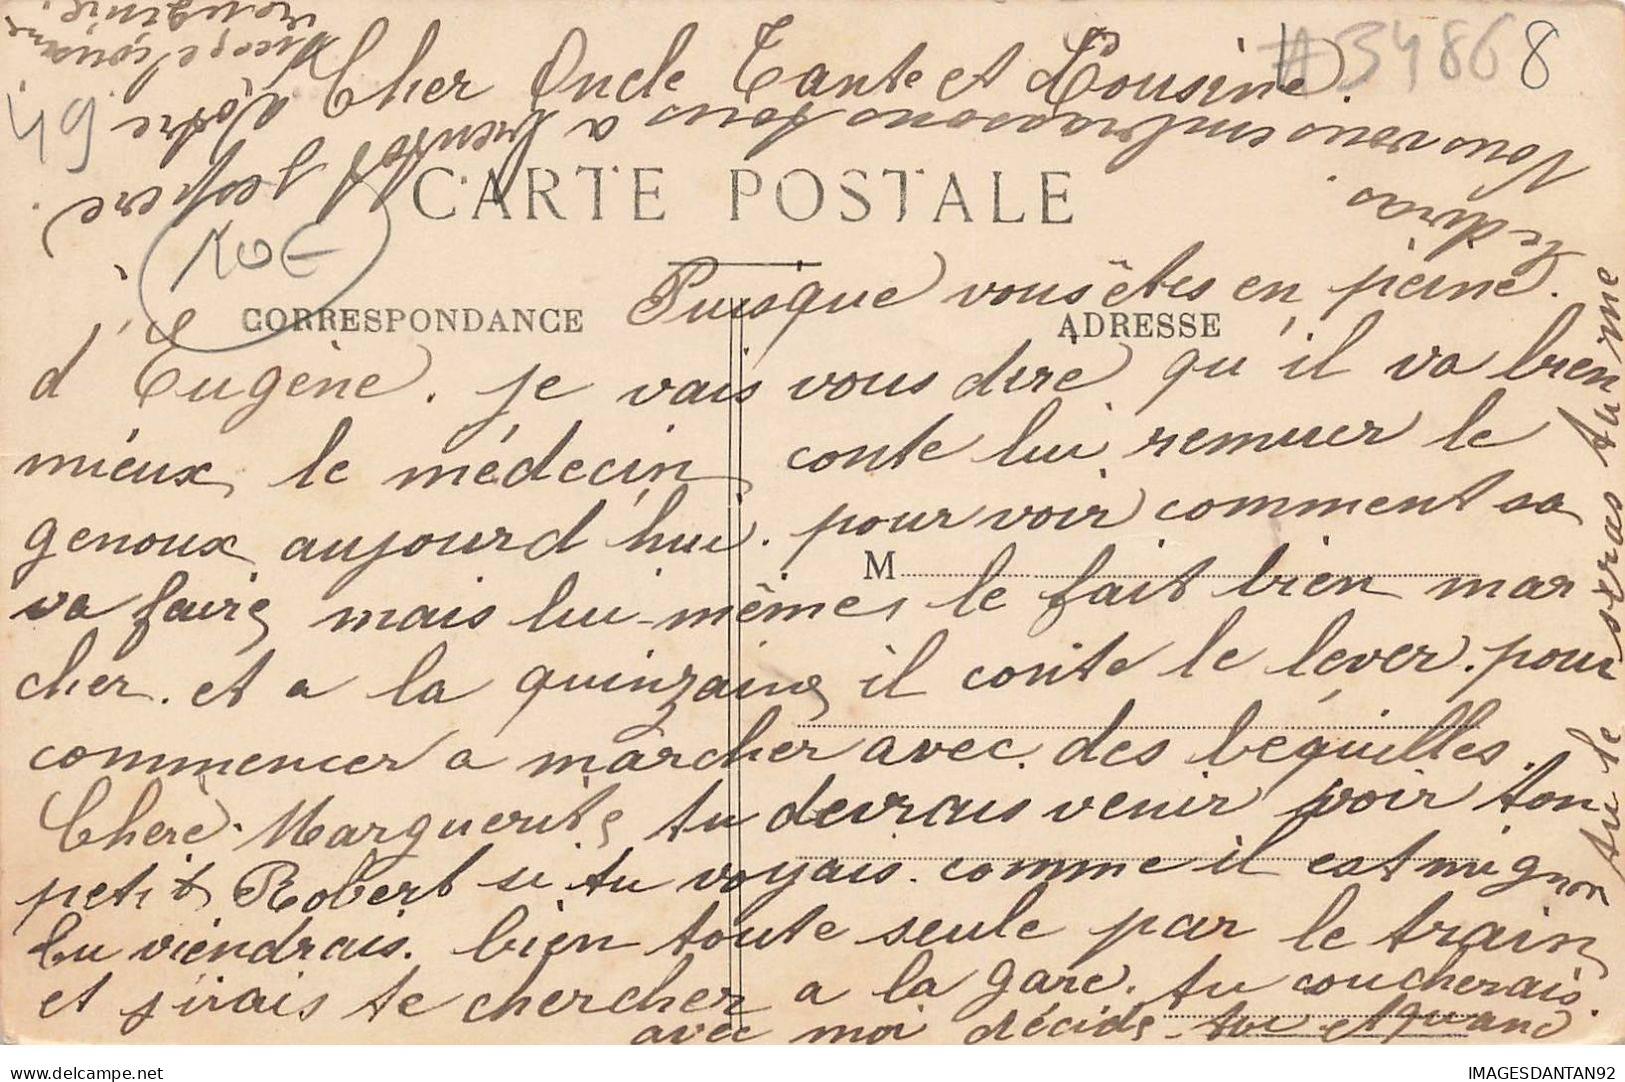 Cher Oncle Tante et Cousine.
#34868
49
CARTE POSTALE
CORRESPONDANCE
ADRESSE
M
Puisque vous êtes en peine.
d'Eugène. je vais vous dire qu'il va bien
mieux, le médecin conte lui remuer le
genoux aujourd'hui. pour voir comment sa
va faire, mais lui-même, le fait bien mar
cher. et a la quinzaine il conte le lever. pour
commencer a marcher avec des bequilles.
Chere Marguerite, tu devrais venir voir ton
petit Robert si tu voyais. comme il est mignon
tu viendrais. bien toute seule par le train
et j'irais te chercher a la gare. tu coucherais.
avec moi décide-toi et quand
tu le
Nous vous embrassons tous a
j'espere
Votre
IMAGESDANTAN92